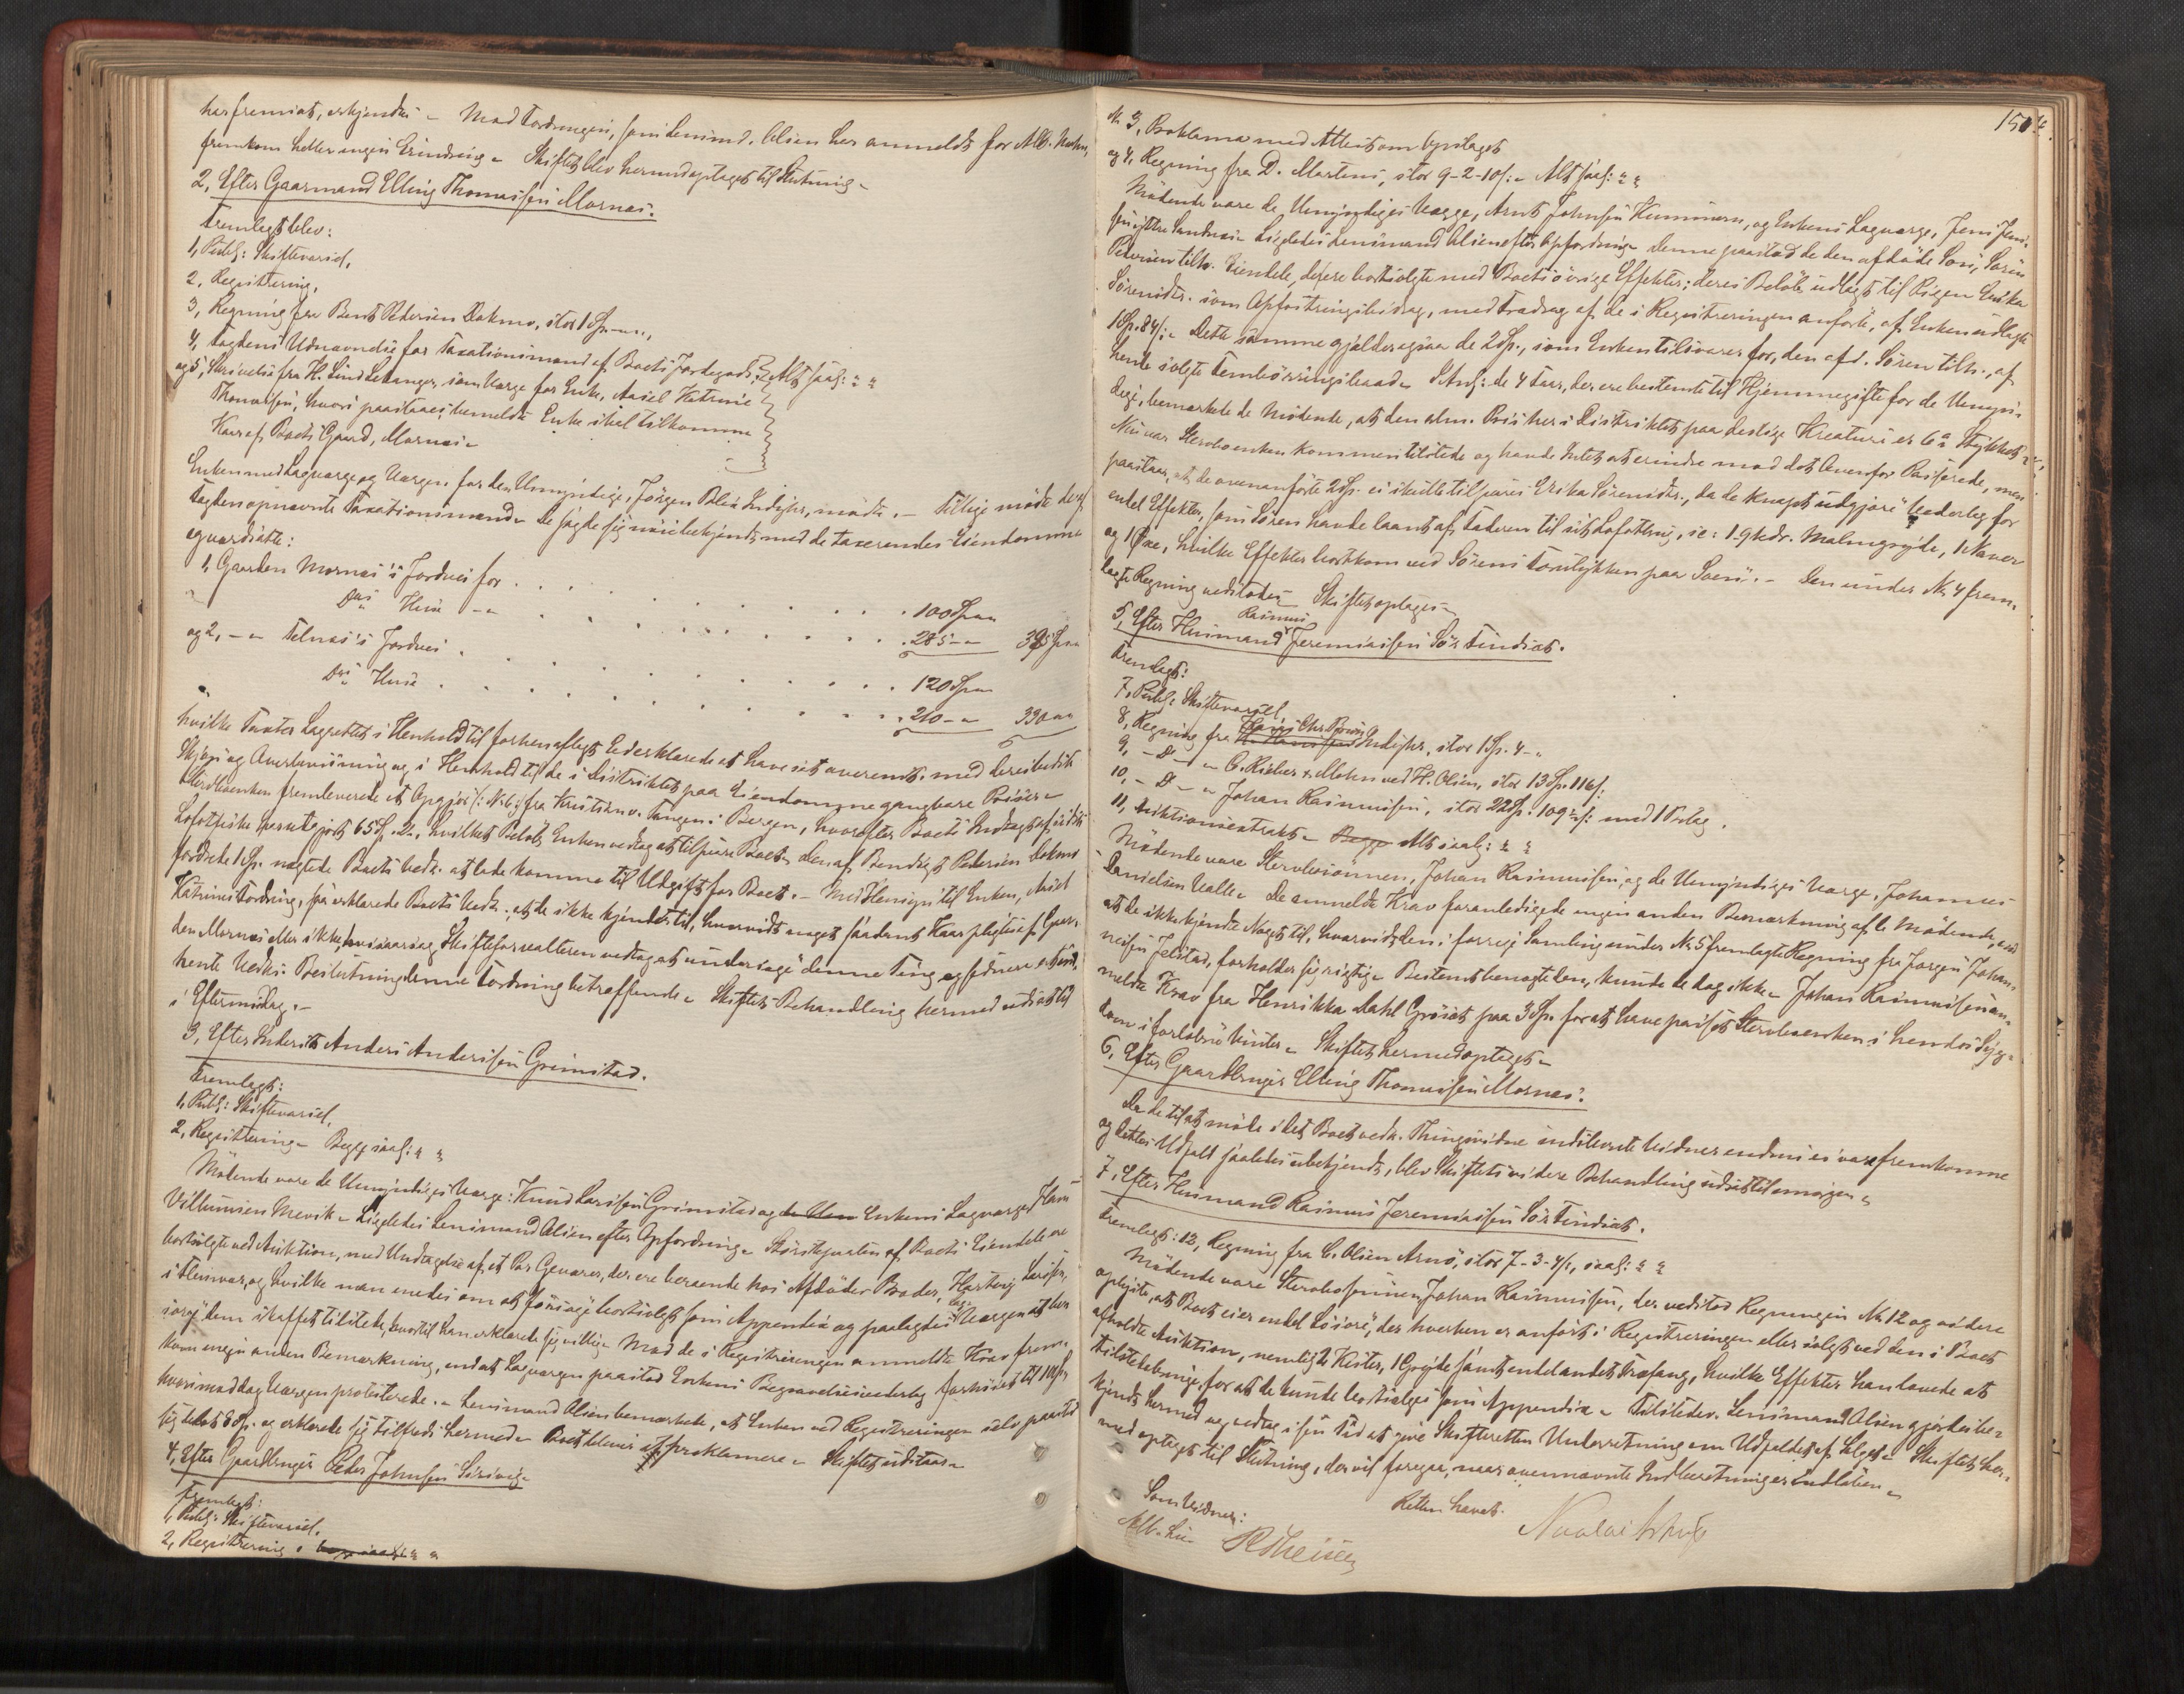 her fremsat, erkjendtes - Mod Fordringen, som Lensmd. Olsen her anmeldte for Alb.
fremkom heller ingen Erindring - Skiftet blev hermed optaget til Slutning -
2, Efter Gaarmand Elling Thomassen Mornæs.
Fremlagt blev:
1, Publ: Skiftevarsel,
2, Registrering,
3, Regning fra Bent Pedersen Dokmo, stor 1 Sp. - "",
4, Fogdens Udnævnelse for Taxationsmænd af Boets Jordegods;
og 5, Skrivelse fra H. Lind Lekanger, som Værge for Enke, Assel Katrine
Thomassen, hvori paastaaes bemeldte Enke skal tilkomme
Kaar af Boets Gaard, Mornæs -
Alt saal: " "
Enken med Laugværge og Værgen for den Umyndige, Jørgen Blix Indyhr, mødte. - Tillige mødte de af
Fogden opnævnte Taxationsmænd - De sagde sig nøie bekjendt med de taxerendes Eiendomme
og værdsatte:
1, Gaarden Mornæs's Jordvei for . . . . . . . . . 100 Sp ""
Ds Huse - " . . . . . . . . . 285 - " 385 Sp ""
og 2, - " Telnæs's Jordvei . . . . . . . . . 120 Sp ""
Ds Huse . . . . . . . . . 210 - " 330 ""
hvilke Taxter Lagrettet i Henhold til forhen aflagt Eed erklærede at have sat overensst. med deres bedste
Skjøn og Overbevisning og i Henhold til de i Distriktet paa Eiendomme gangbare Priser -
Stervboenken fremleverede et Opgjør (: No 6 :) fra Kristian v. Tangen i Bergen, hvorefter Boets Indtægt af sidste
Lofotfiske havde gjort 65 Sp. 2 -, hvilket Beløb Enken vedtog at tilsvare Boet. Den af Bendigt Pedersen Dokmo
fordrede 1 Sp. nægtede Boets Vedk. at lade komme til Udgift for Boet. - Med Hensyn til Enken, Assel
Katrines Fordring, saa erklærede Boets Vedk., at de ikke kjendte til, hvorvidt noget saadant Kaar pligtes af Gaar-
den Mornæs eller ikke, hvisaarsag Skifteforvalteren vedtog at undersøge denne Ting og sednere at ind-
hente Vedk. Beslutning denne Fordring betræffende - Skiftets Behandling hermed udsat til
i Eftermiddag. -
3, Efter Inderst Anders Andersen Grimstad.
Fremlagt:
1, Publ: Skiftevarsel,
2, Registrering - Begge saal: " "
Mødende vare de Umyndiges Værge: Knud Larssen Grimstad og de Um Enkens Laugværge, Hans
Villumsen Mevik - Ligeledes Lensmand Olsen efter Opfordring - Størsteparten af Boets Eiendele ere
bortsolgte ved Auktion, med Undtagelse af et Par Geværer, der ere beroende hos Afdødes Broder, Hartvig Larssen,
i Fleinvær, og hvilke man enedes om at forsøge bortsolgt som Appendix og paalagdes Lag-Værgen at bes
sørge dem skaffet tilstede, hvortil han erklærede sig villig. Mod de i Registreringen anmeldte Krav frem-
kom ingen anden Bemærkning, end at Laugværgen paastod Enkens Begravelsesvederlag forhøiet til 10 Sp.
hvorimod dog Værgen protesterede. - Lensmand Olsen bemærkede, at Enken ved Registreringen selv paastod
sig tillagt 8 Sp. og erklærede sig tilfreds hermed - Boet bliver at proklamere - Skiftet udstaar -
4, Efter Gaardbruger Peder Johnsen Sørsveig -
Fremlagt:
1, Publ: Skiftevarsel,
2, Registrering, begge saal: " "
150
№ 3, Proklama med Attest om Opslaget
og 4, Regning fra D. Martens, stor 9 - 2 - 10 s: - Alt saal: " "
Mødende vare de Umyndiges Værge, Arnt Johnsen Kunnæren, og Enkens Laugværge, Jens Jens-
sen Yttre Sandnæs - Ligeledes Lensmand Olsen efter Opfordring - Denne paastod de den afdøde Søn, Søren
Pedersen tilh. Eiendele, der ere bortsolgte med Boets øvrige Effekter; deres Beløb udlagt til Pigen Erika
Sørensdtr. som Opfostringsbidrag, med Fradrag af de i Registreringen anførte, af Enken udlagte
1 Sp. 84 s: - Dette samme gjælder ogsaa de 2 Sp., som Enken tilsvarer for, den afd. Søren tilh., af
hende solgte Fembørringsbaad - I Anl: de 4 Faar, der ere bestemte til Hjemmegifte for de Umyn-
dige, bemærkede de Mødende, at den alm. Pris her i Distriktet paa deslige Kreature er 6 Stykket -
Nu var Stervboenken kommen tilstede og havde Intet at erindre mod det Ovenfor Passerede, men
paastaar, at de ovenanførte 2 Sp. ei skulle tilfaves Erika Sørensdtr., da de knapt udgjøre Vederlag for
endel Effekter, som Søren havde laant af Faderen til sit Lofotbrug, se: 1 gtkdr. Malingrøide, 1 Naver
og 1 Øxe, hvilke Effekter bortkom ved Sørens Forulykken paa Søen. - Den under № 4 frem-
lagte Regning vedtodes - Skiftet optages -
5, Efter Husmand Rasmus Jeremiassen Sør Findset.
Fremlagt:
7, Publ: Skiftevarsel
8, Regning fra Hans Chr. Indyhr, stor 1 Sp. 4 - "
9, - D - " C. Rieber & Mohn ved H. Olsen, stor 13 Sp. 116 s:
10, - D - " Johan Rasmussen, stor 22 Sp. 109 s: med 1 Bilag.
11, Auktionsextrakt - Begge Alt saal: " "
Mødende vare Stervbosønnen, Johan Rasmussen, og de Umyndiges Værge, Johannes
Danielsen Valle - De anmeldte Krav foranledigede ingen anden Bemærkning af de Mødende, end
at de ikke kjendte Noget til, hvorvidt den i forrige Samling under № 5 fremlagte Regning fra Jørgen Johan-
nessen Jelstad, forholder sig rigtig - Bestemt benægte den, kunde de dog ikke - Johan Rasmussen an-
meldte Krav fra Henrikka Dahl Grøset paa 3 Sp. for at have passet Stervboenken i hendes Syg-
dom i forløbne Vinter - Skiftet hermed optaget -
6, Efter Gaardbruger Elling Thomassen Mornæs.
Da de til at møde i det Boet vedk. Thingsvidne indstevnte Vidner endnu ei vare fremkomne
og dettes Udfald saaledes ubekjendt, blev Skiftets videre Behandling udsat til imorgen -
7, Efter Husmand Rasmus Jeremiassen Sør Findset.
Fremlagt: 12, Regning fra C. Olsen Arnø, stor 7 - 3 - 4 s:, saal: " "
Mødende vare Stervbosønnen Johan Rasmussen, der vedtod Regningen № 12 og videre
oplyste, at Boet eier endel Løsøre, der hverken er anført i Registreringen eller solgt ved den i Boet
afholdte Auktion, nemlig 2 Kister, 1 Gryde samt endel andet Træfang, hvilke Effekter han lovede at
tilstedebringe, for at de kunde bortsælges som Appendix - Tilstedev. Lensmand Olsen gjordes be-
kjendt hermed og vedtog i sin Tid at give Skifteretten Underretning om Udfaldet af Salget - Skiftet her-
med optaget til Slutning, der vil foregaa, naar ovennævnte Indberetning er indløben -
Som Vidner:
Retten hævet.
Alb. Lie